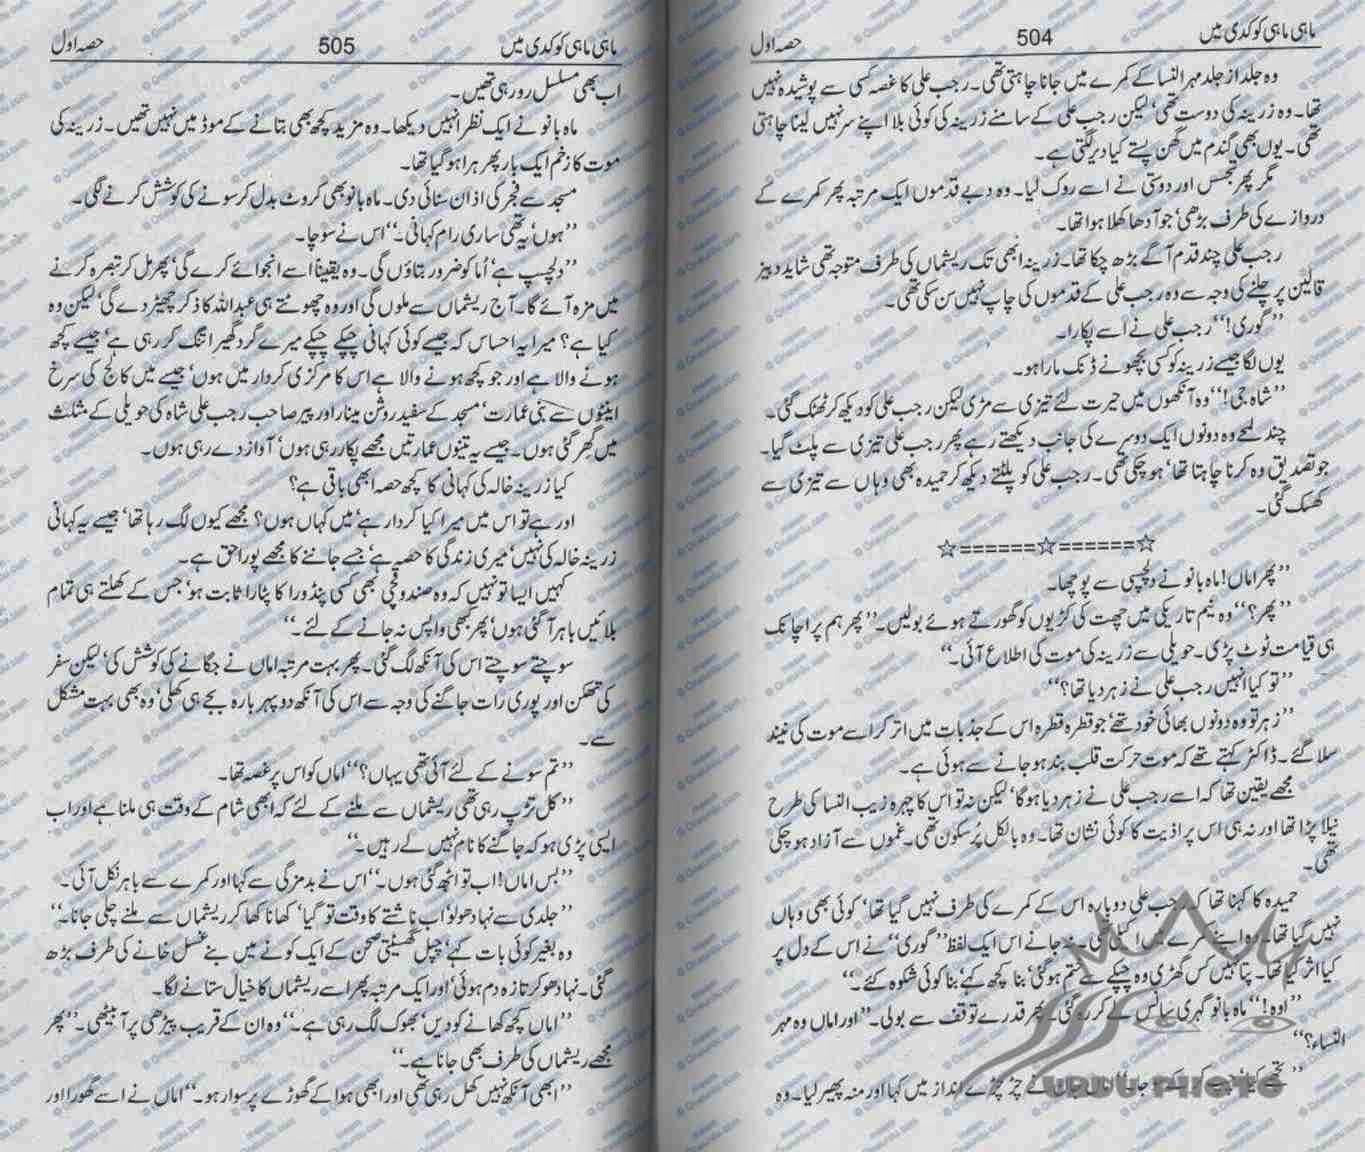 ماہی ماہی کوکدی میں 504 حصہ اول
وہ جلد از جلد مہر النسا کے کمرے میں جانا چاہتی تھی۔ رجب علی کا غصہ کسی سے پوشیدہ نہیں
تھا۔ وہ زرینہ کی دوست تھی‘ لیکن رجب علی کے سامنے زرینہ کی کوئی بلا اپنے سر نہیں لینا چاہتی
تھی۔ یوں بھی گندم میں گھن پستے کیا دیر لگتی ہے۔
مگر پھر تجسس اور دوستی نے اسے روک لیا۔ وہ دبے قدموں ایک مرتبہ پھر کمرے کے
دروازے کی طرف بڑھی‘ جو آدھا کھلا ہوا تھا۔
رجب علی چند قدم آگے بڑھ چکا تھا۔ زرینہ ابھی تک ریشماں کی طرف متوجہ تھی شاید دبیز
قالین پر چلنے کی وجہ سے وہ رجب علی کے قدموں کی چاپ نہیں سن سکی تھی۔
’’گوری!‘‘ رجب علی نے اسے پکارا۔
یوں لگا جیسے زرینہ کو کسی بچھو نے ڈنک مارا ہو۔
’’شاہ جی!‘‘ وہ آنکھوں میں حیرت لئے تیزی سے مڑی لیکن رجب علی کو دیکھ کر ٹھٹک گئی۔
چند لمحے وہ دونوں ایک دوسرے کی جانب دیکھتے رہے پھر رجب علی تیزی سے پلٹ گیا۔
جو تصدیق وہ کرنا چاہتا تھا‘ ہو چکی تھی۔ رجب علی کو پلٹتے دیکھ کر حمیدہ بھی وہاں سے تیزی سے
کھسک گئی۔
☆======☆======☆
’’پھر اماں! ماہ بانو نے دلچسپی سے پوچھا۔
’’پھر؟‘‘ وہ نیم تاریکی میں چھت کی کڑیوں کو گھورتے ہوئے بولیں۔ ’’پھر ہم پر اچانک
ہی قیامت ٹوٹ پڑی۔ حویلی سے زرینہ کی موت کی اطلاع آئی۔‘‘
’’تو کیا انہیں رجب علی نے زہر دیا تھا؟‘‘
’’زہر تو وہ دونوں بھائی خود تھے‘ جو قطرہ قطرہ اس کے جذبات میں اتر کر اسے موت کی نیند
سلا گئے۔ ڈاکٹر کہتے تھے کہ موت حرکت قلب بند ہو جانے سے ہوئی ہے۔
مجھے یقین تھا کہ اسے رجب علی نے زہر دیا ہوگا‘ لیکن نہ تو اس کا چہرہ زیب النسا کی طرح
نیلا پڑا تھا اور نہ ہی اس پر اذیت کا کوئی نشان تھا۔ وہ بالکل پُر سکون تھی۔ غموں سے آزاد ہو چکی
تھی۔
حمیدہ کا کہنا تھا کہ رجب علی دوبارہ اس کے کمرے کی طرف نہیں گیا تھا‘ کوئی بھی وہاں
نہیں گیا تھا۔ وہ اپنے کمرے میں اکیلی تھی۔ نہ جانے اس ایک لفظ ’’گوری‘‘ نے اس کے دل پر
کیا اثر کیا تھا۔ پتا نہیں کس گھڑی وہ چپکے سے ختم ہو گئی‘ بنا کچھ کہے‘ بنا کوئی شکوہ کئے۔‘‘
’’اوہ!‘‘ ماہ بانو گہری سانس لے کر رہ گئی۔ پھر قدرے توقف سے بولی۔ ’’اور اماں وہ مہر
النساء؟‘‘
نے چڑچڑے انداز میں کہا اور منہ پھیر لیا۔ وہ
URDU PHOTO
ماہی ماہی کوکدی میں 505 حصہ اول
اب بھی مسلسل رو رہی تھیں۔
ماہ بانو نے ایک نظر انہیں دیکھا۔ وہ مزید کچھ بھی بتانے کے موڈ میں نہیں تھیں۔ زرینہ کی
موت کا زخم ایک بار پھر ہرا ہو گیا تھا۔
مسجد سے فجر کی اذان سنائی دی۔ ماہ بانو بھی کروٹ بدل کر سونے کی کوشش کرنے لگی۔
’’ہوں‘ یہ تھی ساری رام کہانی۔‘‘ اس نے سوچا۔
’’دلچسپ ہے‘ اُما کو ضرور بتاؤں گی۔ وہ یقیناً اسے انجوائے کرے گی‘ پھر مل کر تبصرہ کرنے
میں مزہ آئے گا۔ آج ریشماں سے ملوں گی اور وہ چھوٹتے ہی عبداللہ کا ذکر چھیڑ دے گی‘ لیکن وہ
کیا ہے؟ میرا یہ احساس کہ جیسے کوئی کہانی چپکے چپکے میرے گرد گھیرا تنگ کر رہی ہے‘ جیسے کچھ
ہونے والا ہے اور جو کچھ ہونے والا ہے اس کا مرکزی کردار میں ہوں‘ جیسے میں کالج کی سرخ
اینٹوں سے بنی عمارت‘ مسجد کے سفید روشن مینار اور پیر صاحب رجب علی شاہ کی حویلی کے مثلث
میں گھر گئی ہوں۔ جیسے یہ تینوں عمارتیں مجھے پکار رہی ہوں‘ آواز دے رہی ہوں۔
کیا زرینہ خالہ کی کہانی کا کچھ حصہ ابھی باقی ہے؟
اور ہے تو اس میں میرا کیا کردار ہے‘ میں کہاں ہوں؟ مجھے کیوں لگ رہا تھا‘ جیسے یہ کہانی
زرینہ خالہ کی نہیں‘ میری زندگی کا حصہ ہے‘ جسے جاننے کا مجھے پورا حق ہے۔
کہیں ایسا تو نہیں کہ وہ صندوقچی بھی کسی پنڈورا کا پٹارا ثابت ہو‘ جس کے کھلتے ہی تمام
بلائیں باہر آ گئی ہوں‘ پھر کبھی واپس نہ جانے کے لئے۔‘‘
سوچتے سوچتے اس کی آنکھ لگ گئی۔ پھر بہت مرتبہ اماں نے جگانے کی کوشش کی‘ لیکن سفر
کی تھکن اور پوری رات جاگنے کی وجہ سے اس کی آنکھ دوپہر بارہ بجے ہی کھلی‘ وہ بھی بہت مشکل
سے۔
’’تم سونے کے لئے آئی تھی یہاں؟‘‘ اماں کو اس پر غصہ تھا۔
’’کل تڑپ رہی تھی ریشماں سے ملنے کے لئے کہ ابھی شام کے وقت ہی ملنا ہے اور اب
ایسی پڑی ہو کہ جاگنے کا نام نہیں لے رہیں۔‘‘
’’بس اماں! اب تو اٹھ گئی ہوں۔‘‘ اس نے بدمزگی سے کہا اور کمرے سے باہر نکل آئی۔
’’جلدی سے نہا دھو لو‘ اب ناشتے کا وقت تو گیا‘ کھانا کھا کر ریشماں سے ملنے چلی جانا۔‘‘
وہ بغیر کوئی بات کہے‘ چپل گھسیٹتی صحن کے ایک کونے میں بنے غسل خانے کی طرف بڑھ
گئی۔ نہا دھو کر تازہ دم ہوئی‘ اور ایک مرتبہ پھر اسے ریشماں کا خیال ستانے لگا۔
’’اماں کچھ کھانے کو دیں‘ بھوک لگ رہی ہے۔‘‘ وہ ان کے قریب پیڑھی پر آ بیٹھی۔ ’’پھر
مجھے ریشماں کی طرف بھی جانا ہے۔‘‘
’’ابھی آنکھ نہیں کھل رہی تھی اور ابھی ہوا کے گھوڑے پر سوار ہو۔‘‘ اماں نے اسے گھورا اور